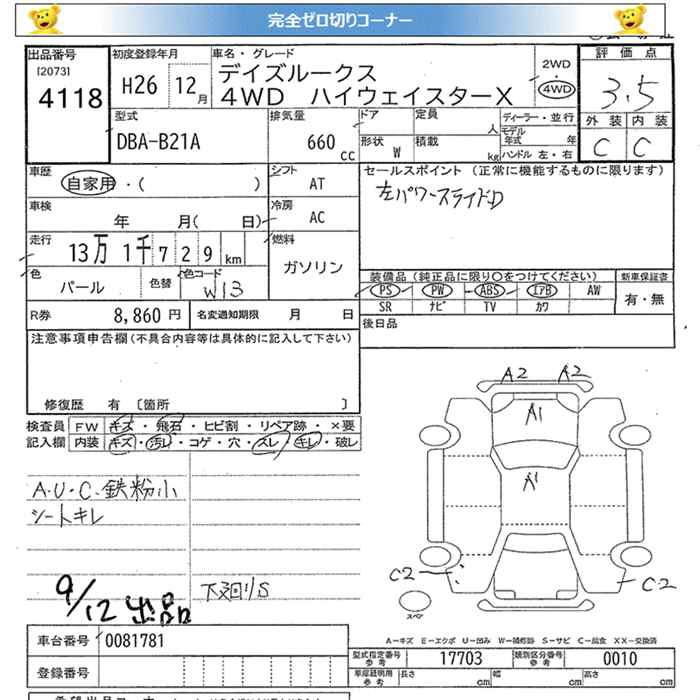 完全ゼロ切りコーナー
出品番号 [2073] 4118
初度登録年月 H26 12月
車名・グレード デイズルークス
4WD ハイウェイスターX
2WD 4WD
評価点 3.5
外装 内装
C C
型式 DBA-B21A
排気量 660 CC
ドア 定員 人
形状 W 積載 kg
ディーラー・並行
モデル年式 年
ハンドル 左・右
車歴 自家用・( )
シフト AT
セールスポイント (正常に機能するものに限ります)
左パワースライドD
車検 年 月( 日)
冷房 AC
走行 13万 1千 7 2 9 km
燃料 ガソリン
色 パール 色替 色コード W13
装備品 (純正品に限り○をつけてください) 新車保証書
PS PW ABS エアB AW 有・無
SR ナビ TV カワ
R券 8,860 円 名変通知期限 月 日
後日品
注意事項申告欄(不具合内容等は具体的に記入して下さい)
修復歴 有 〔箇所 〕
検査員記入欄
FW キズ・飛石・ヒビ割・リペア跡・×要
内装 キズ・汚レ・コゲ・穴・スレ・キレ・破レ
A2 A2
A1
A1
A.U.C.鉄粉小
シートキレ
C2 C2
9/12 出品
下廻りS
スペア
A-キズ E-エクボ U-凹み W-補修跡 S-サビ C-腐食 XX-交換済
車台番号 0081781
型式指定番号 参考 17703 類別区分番号 参考 0010
登録番号
車庫証明用 参考 長さ cm 幅 cm 高さ cm